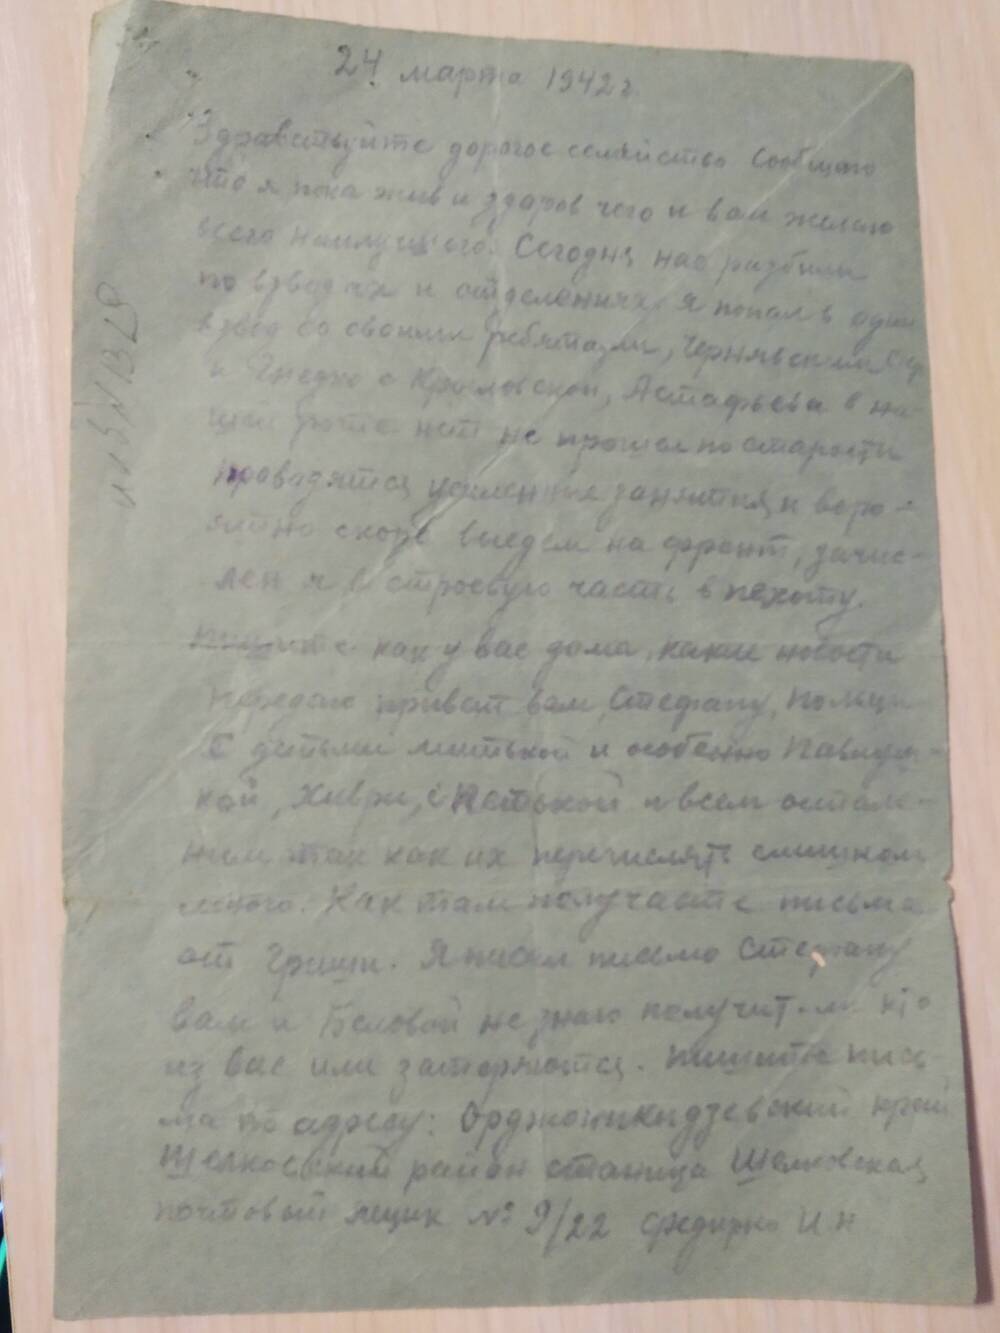 24 марта 1942 г.
Здравствуйте дорогое семейство Сообщаю
что я пока жив и здоров чего и вам желаю
всего наилучшего. Сегодня нас разбили
по взводах и отделениях я попал в один
взвод со своими ребятами, Чернявским
и Гнедко с Крыловской, Астафьева в на-
шей роте нет не прошел по старости
проводятся усиленные занятия и веро-
ятно скоро выедем на фронт, зачис-
лен я в строевую часть в пехоту.
пишите как у вас дома, какие новости
передаю привет вам, Стефану,
с детьми митькой и особенно Павлуш-
кой, Хиври, с Петькой и всем осталь-
ным так как их перечислять слишком
много. Как там получаете письма
от Гриши. Я писал письмо Стефану
вам и Беловой не знаю получит ли кто
из вас или затеряются. пишите пись-
ма по адресу: Орджоникидзевский край
Шелковский район станица Шелковская
почтовый ящик № 9/22 И Н